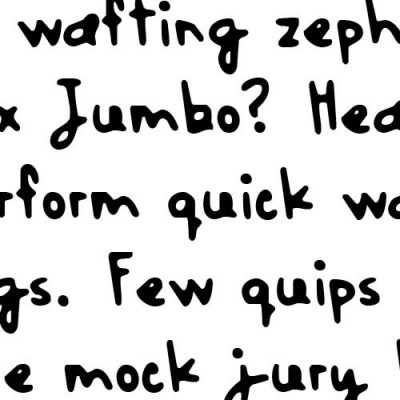 wafting zeph
x Jumbo? Hea
rform quick wa
gs. Few quips
e mock jury